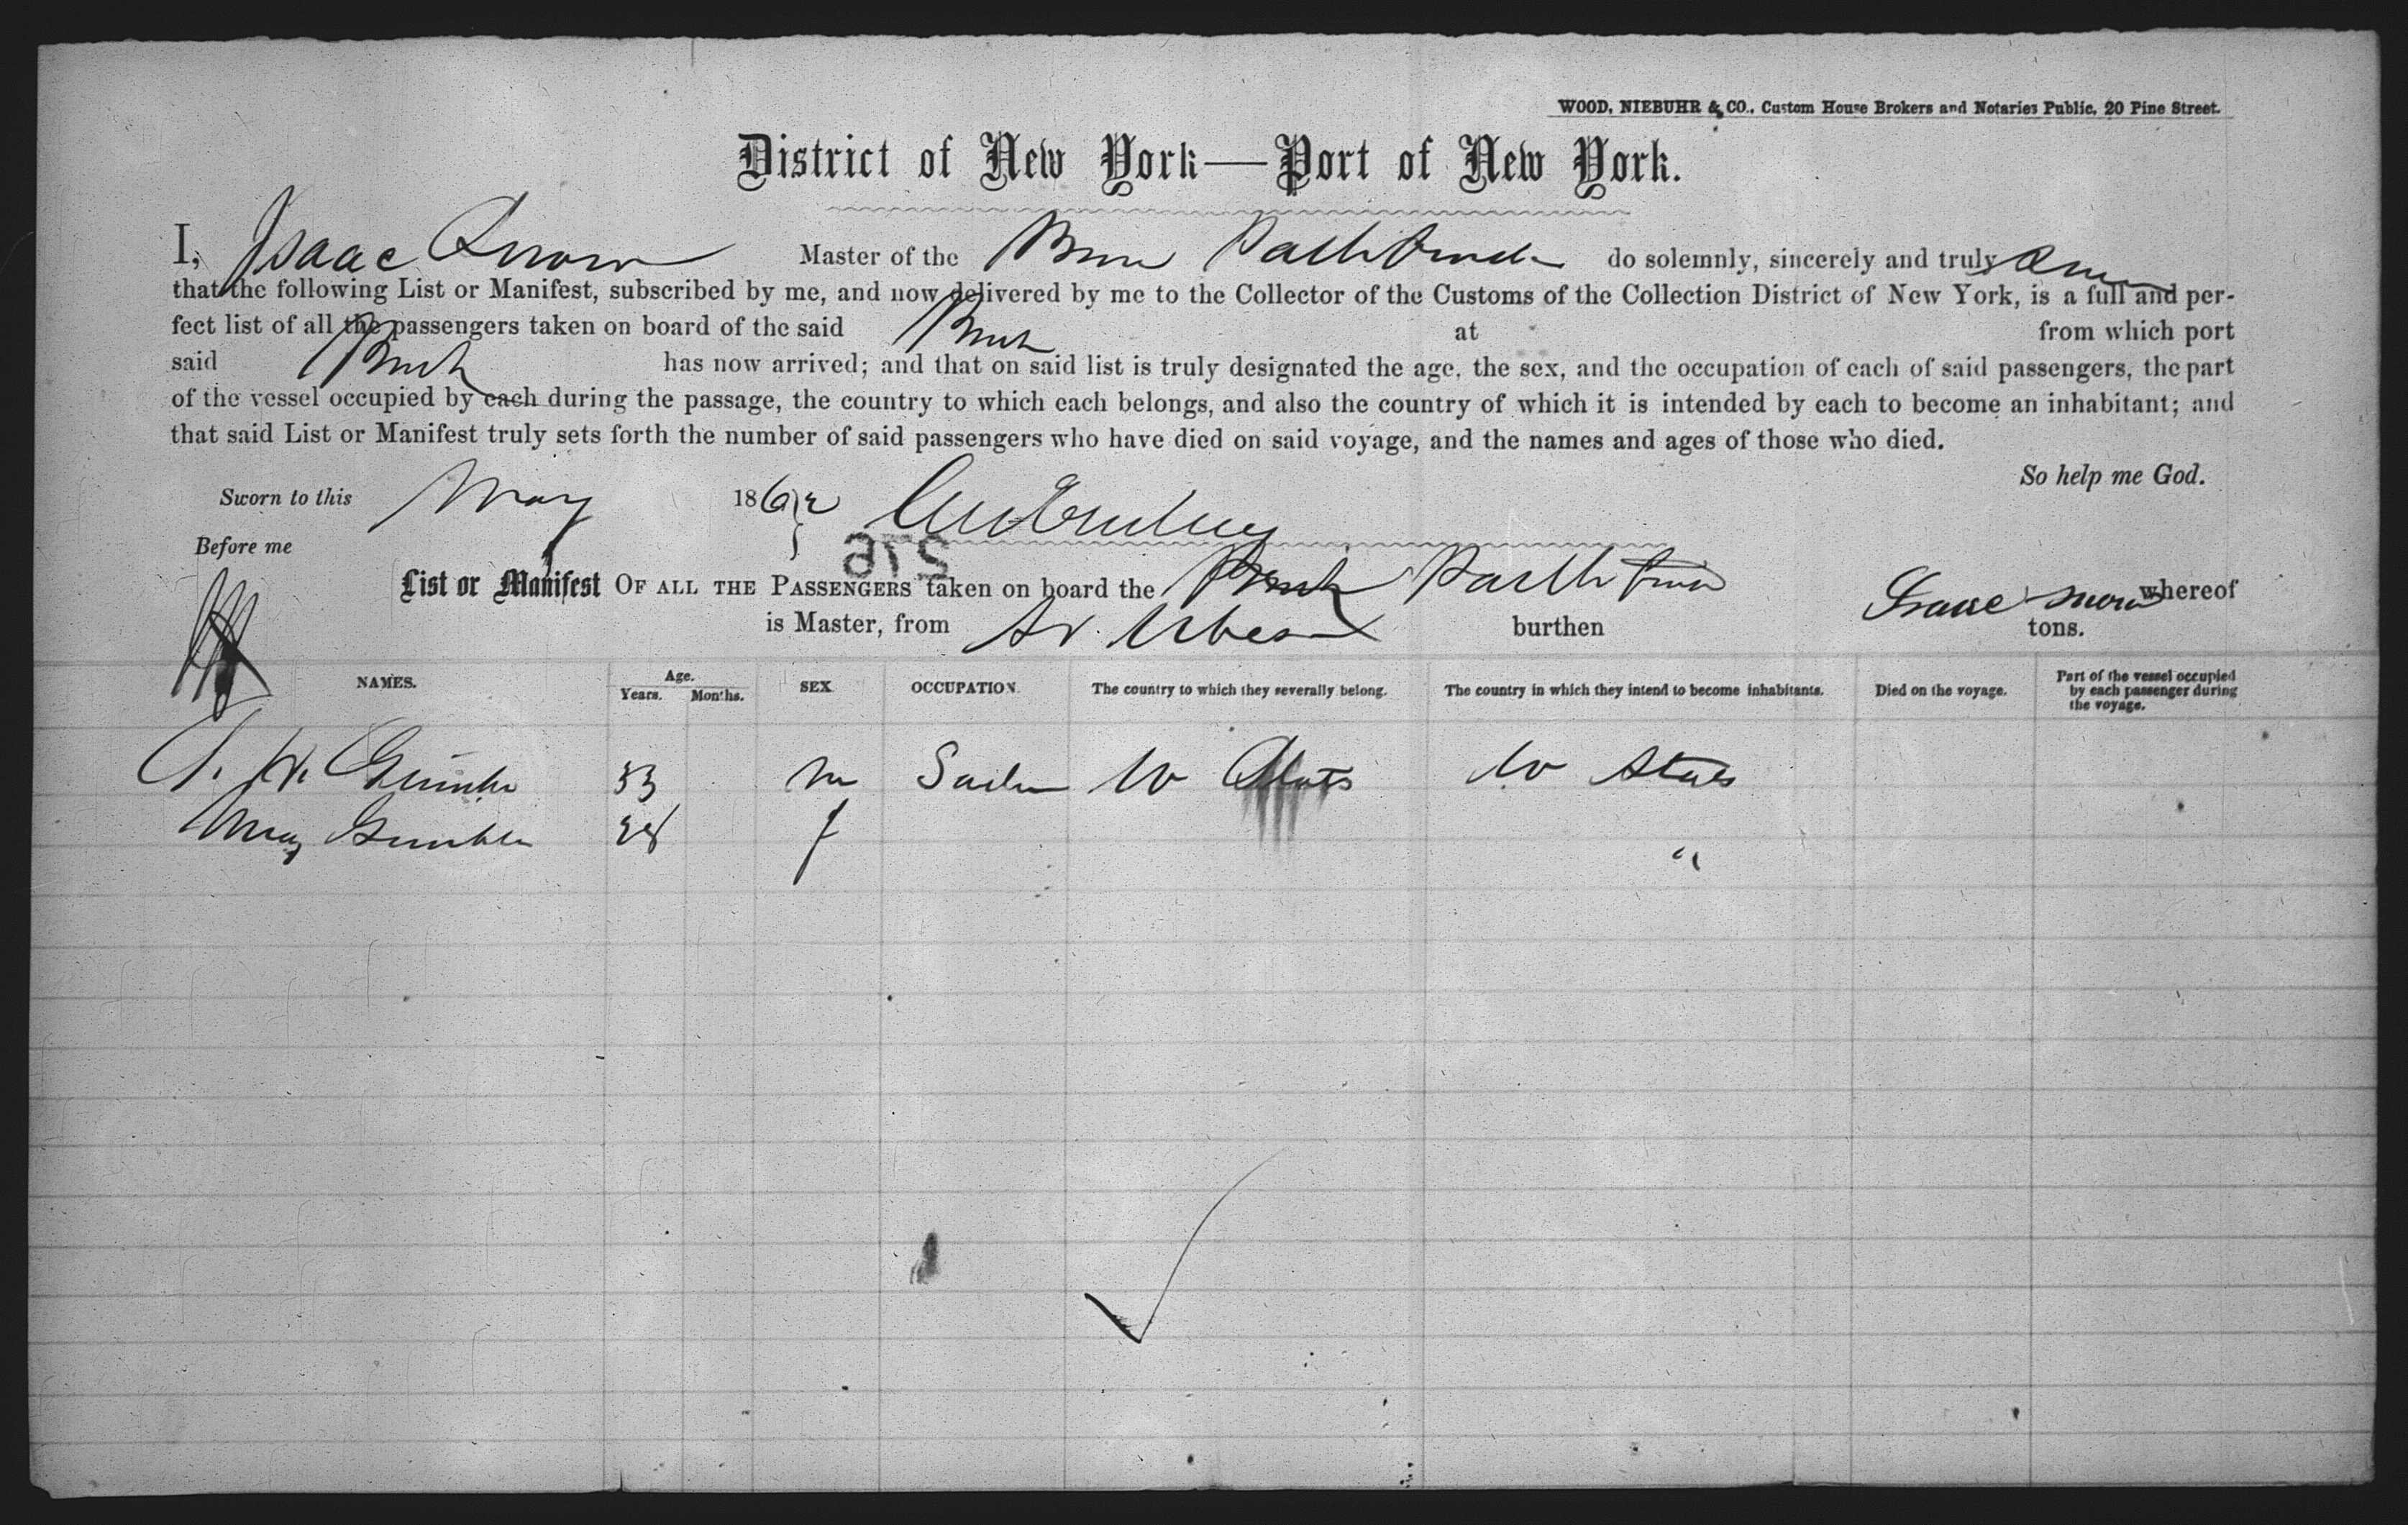 WOOD, NIEBUHR & CO., Custom House Brokers and Notaries Public, 20 Pine Street.
District of New York—Port of New York.
I, Isaac Snow Master of the do solemnly, sincerely and truly
that the following List or Manifest, subscribed by me, and now delivered by me to the Collector of the Customs of the Collection District of New York, is a full and per-
fect list of all the passengers taken on board of the said at from which port
said has now arrived; and that on said list is truly designated the age, the sex, and the occupation of each of said passengers, the part
of the vessel occupied by each during the passage, the country to which each belongs, and also the country of which it is intended by each to become an inhabitant; and
that said List or Manifest truly sets forth the number of said passengers who have died on said voyage, and the names and ages of those who died.
So help me God.
Sworn to this May 1862
Before me
216
List or Manifest OF ALL THE PASSENGERS taken on board the Isaac Snow whereof
is Master, from burthen tons.
NAMES. Age. Years. Months. SEX. OCCUPATION. The country to which they severally belong. The country in which they intend to become inhabitants. Died on the voyage. Part of the vessel occupied by each passenger during the voyage.
33 m U States
28 f "